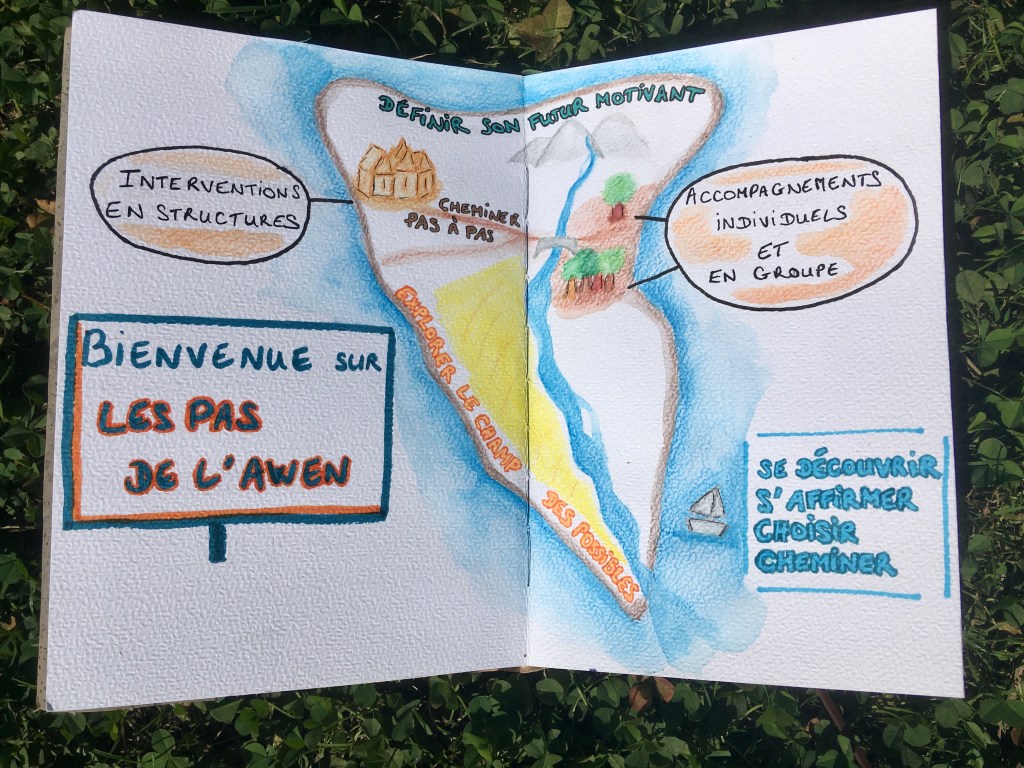 DÉFINIR SON FUTUR MOTIVANT
INTERVENTIONS
EN STRUCTURES
CHEMINER
PAS À PAS
ACCOMPAGNEMENTS
INDIVIDUELS
ET
EN GROUPE
EXPLORER LE CHAMP
DES POSSIBLES
BIENVENUE SUR
LES PAS
DE L'AWEN
SE DÉCOUVRIR
S'AFFIRMER
CHOISIR
CHEMINER